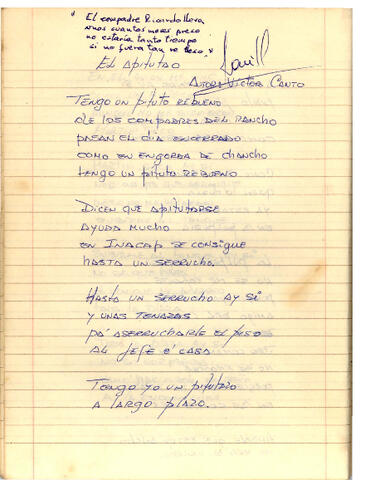 "El compadre Ricardo lleva
unos cuantos meses preso
no estaría tanto tiempo
si no fuera tan
El Apitutao
Autor: Victor Canto
Tengo un pituto rebueno
de los compadres del rancho
pasan el día encerrado
como en engorda de chancho
tengo un pituto rebueno
Dicen que apitutarse
ayuda mucho
en Inacap se consigue
hasta un serrucho.
Hasta un serrucho ay si
y unas tenazas
pa' aserrucharle el piso
al jefe e' casa
Tengo yo un pitutazo
a largo plazo.